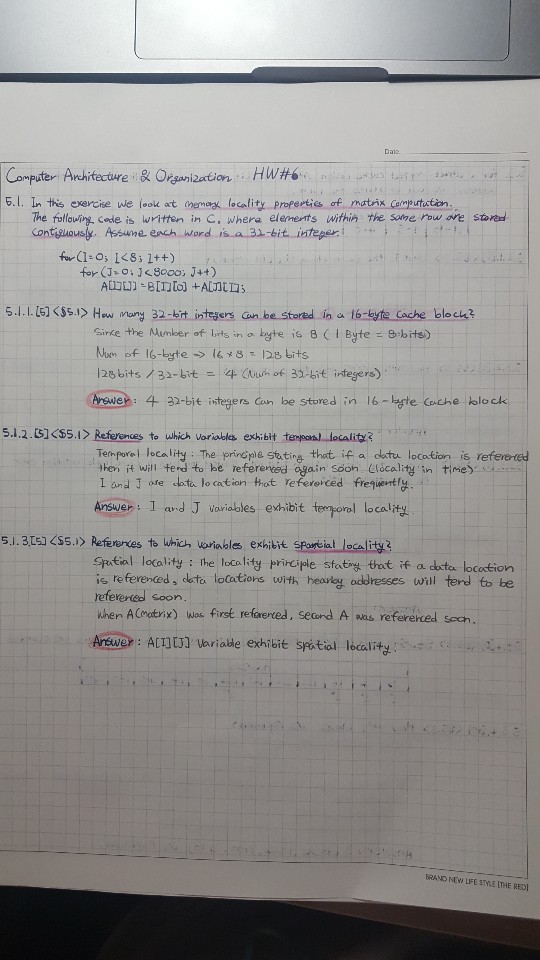 Date.
Computer Architecture & Organization HW#6
5.1. In this exercise we look at memory locality properties of matrix computation.
The following code is written in C, where elements within the same row are stored
Contiguously. Assume each word is a 32-bit integer.
for(I=0; I<8; I++)
for(J=0; J<8000; J++)
A[I][J]=B[I][0]+A[J][I];
5.1.1.[5]<§5.1> How many 32-bit integers can be stored in a 16-byte cache block?
Since the Number of bits in a byte is 8 (1 Byte = 8bits)
Num of 16-byte → 16 × 8 = 128 bits
128bits / 32-bit = 4 (Num of 32-bit integers)
Answer : 4 32-bit integers can be stored in 16-byte cache block
5.1.2.[5]<§5.1> References to which variables exhibit temporal locality?
Temporal locality : The principle stating that if a data location is referenced
then it will tend to be referenced again soon (locality in time)
I and J are data location that referenced frequently.
Answer : I and J variables exhibit temporal locality.
5.1.3.[5]<§5.1> References to which variables exhibit spartial locality?
Spatial locality : The locality principle stating that if a data location
is referenced, data locations with nearby addresses will tend to be
referenced soon.
When A(matrix) was first referenced, second A was referenced soon.
Answer : A[I][J] variable exhibit spatial locality.
BRAND NEW LIFE STYLE [THE RED]